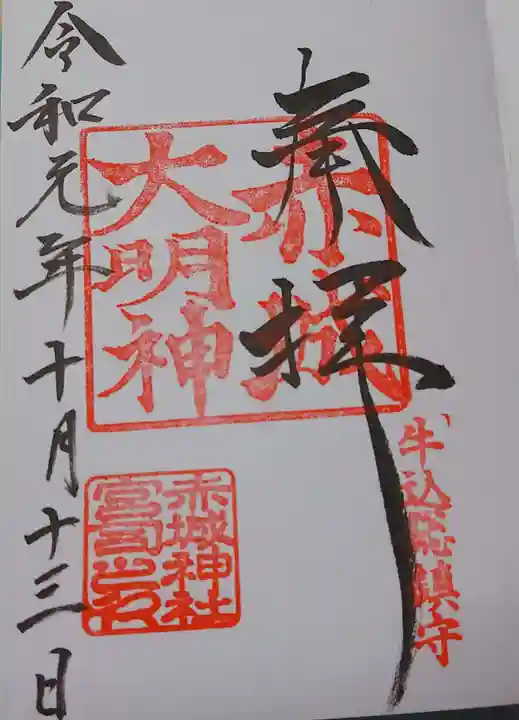 奉拝
赤城
大明神
牛込総鎮守
赤城神社
宮司之印
令和元年十月十三日